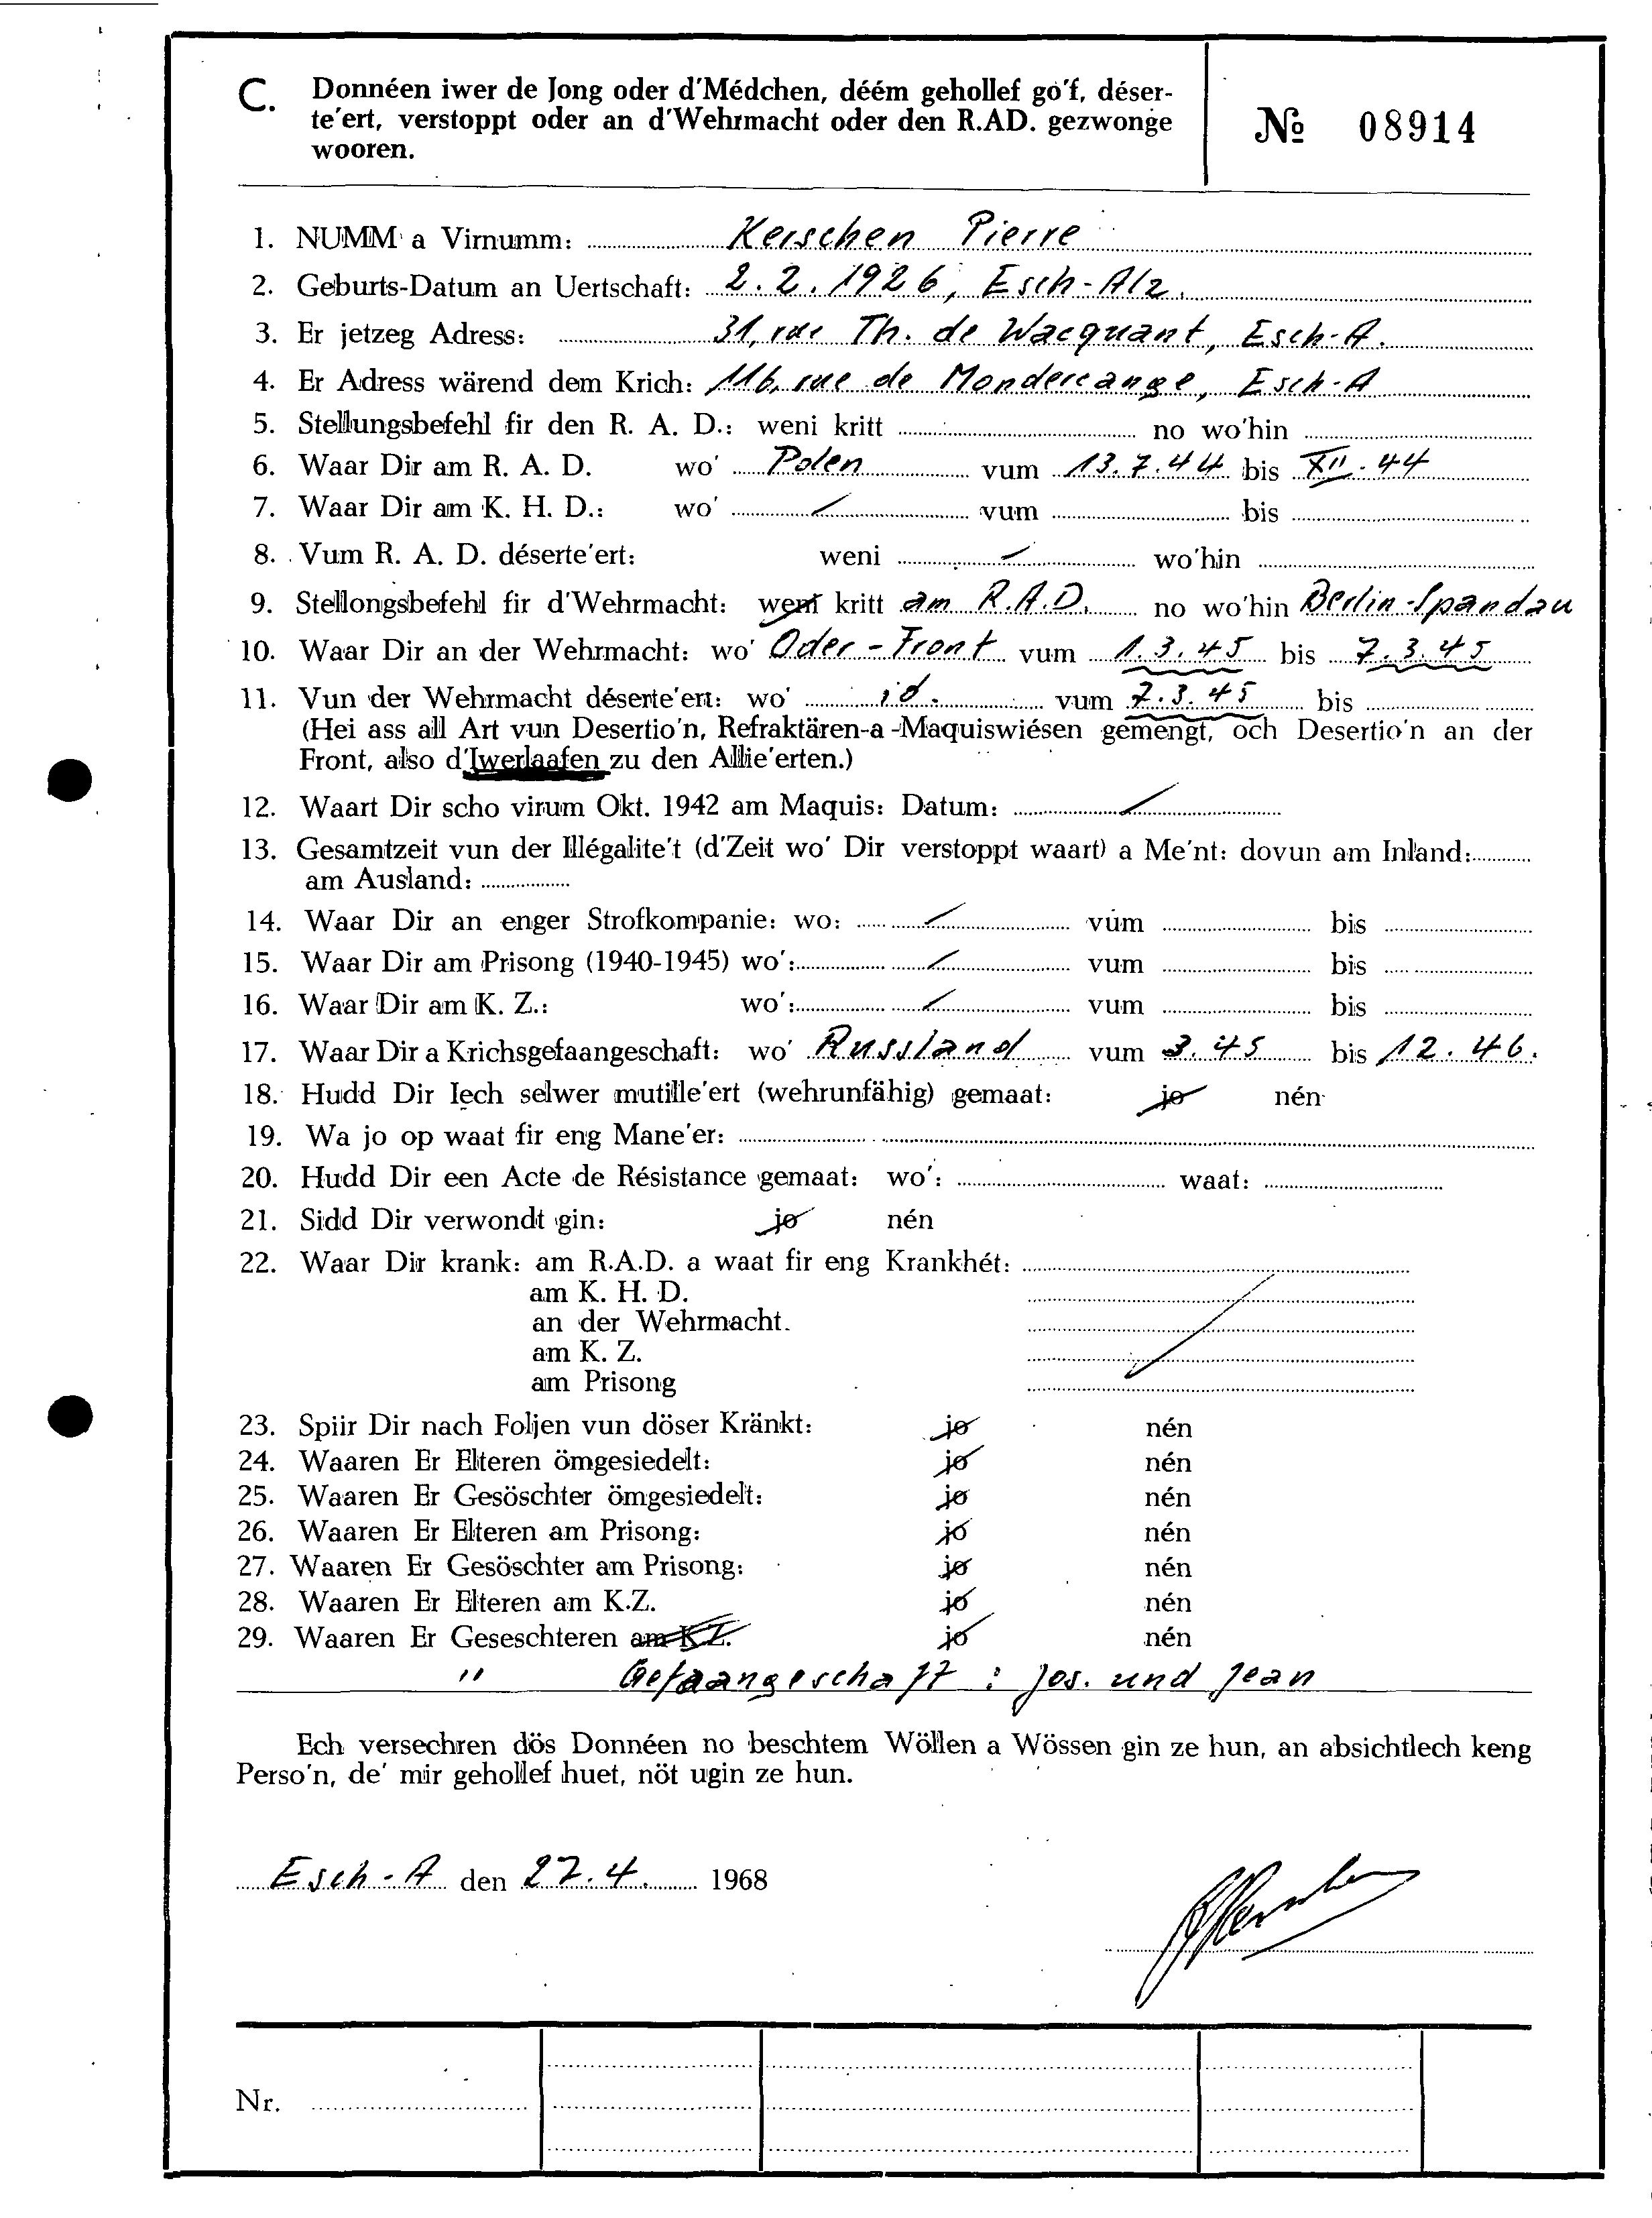 C. Donnéen iwer de Jong oder d'Médchen, déém gehollef go'f, déser-
te'ert, verstoppt oder an d'Wehrmacht oder den R.AD. gezwonge
wooren.
№ 08914
1. NUMM a Virnumm: Kerschen Pierre
2. Geburts-Datum an Uertschaft: 2.2.1926, Esch-Alz.
3. Er jetzeg Adress: 31, rue Th. de Wacquant, Esch-A.
4. Er Adress wärend dem Krich: 116, rue de Mondercange, Esch-A
5. Stellungsbefehl fir den R. A. D.: weni kritt no wo'hin
6. Waar Dir am R. A. D. wo' Polen vum 13.7.44 bis XII.44
7. Waar Dir am K. H. D.: wo' / vum bis
8. Vum R. A. D. déserte'ert: weni / wo'hin
9. Stellongsbefehl fir d'Wehrmacht: weni kritt am R.A.D. no wo'hin Berlin-Spandau
10. Waar Dir an der Wehrmacht: wo' Oder-Front vum 1.3.45 bis 7.3.45
11. Vun der Wehrmacht déserte'ert: wo' id. vum 7.3.45 bis
(Hei ass all Art vun Desertio'n, Refraktären-a-Maquiswiésen gemengt, och Desertio'n an der
Front, also d'Iwerlaafen zu den Allie'erten.)
12. Waart Dir scho virum Okt. 1942 am Maquis: Datum: /
13. Gesamtzeit vun der Illégalite't (d'Zeit wo' Dir verstoppt waart) a Me'nt: dovun am Inland:
am Ausland:
14. Waar Dir an enger Strofkompanie: wo: / vum bis
15. Waar Dir am Prisong (1940-1945) wo': / vum bis
16. Waar Dir am K. Z.: wo': / vum bis
17. Waar Dir a Krichsgefaangeschaft: wo' Russland vum 3.45 bis 12.46.
18. Hudd Dir Iech selwer mutille'ert (wehrunfähig) gemaat: jo nén
19. Wa jo op waat fir eng Mane'er:
20. Hudd Dir een Acte de Résistance gemaat: wo': waat:
21. Sidd Dir verwondt gin: jo nén
22. Waar Dir krank: am R.A.D. a waat fir eng Krankhét:
am K. H. D.
an der Wehrmacht.
am K. Z.
am Prisong
23. Spiir Dir nach Foljen vun döser Kränkt: jo nén
24. Waaren Er Elteren ömgesiedelt: jo nén
25. Waaren Er Gesöschter ömgesiedelt: jo nén
26. Waaren Er Elteren am Prisong: jo nén
27. Waaren Er Gesöschter am Prisong: jo nén
28. Waaren Er Elteren am K.Z. jo nén
29. Waaren Er Geseschteren am K.Z. jo nén
" Gefaangeschaft: Jos. und Jean
Ech versechren dös Donnéen no beschtem Wöllen a Wössen gin ze hun, an absichtlech keng
Perso'n, de' mir gehollef huet, nöt ugin ze hun.
Esch-A den 27.4. 1968
Nr.